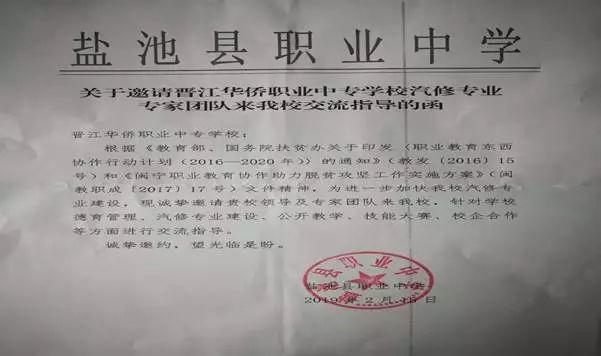 盐池县职业中学
关于邀请晋江华侨职业中专学校汽修专业
专家团队来我校交流指导的函
晋江华侨职业中专学校：
根据《教育部、国务院扶贫办关于印发〈职业教育东西
协作行动计划（2016—2020年）〉的通知》（教发〔2016〕15
号）和《闽宁职业教育协作助力脱贫攻坚工作实施方案》（闽
教职成〔2017〕17号）文件精神，为进一步加快我校汽修专
业建设，现诚挚邀请贵校领导及专家团队来我校，针对学校
德育管理、汽修专业建设、公开教学、技能大赛、校企合作
等方面进行交流指导。
诚挚邀约，望光临是盼。
盐池县职业中学
2019年2月 日